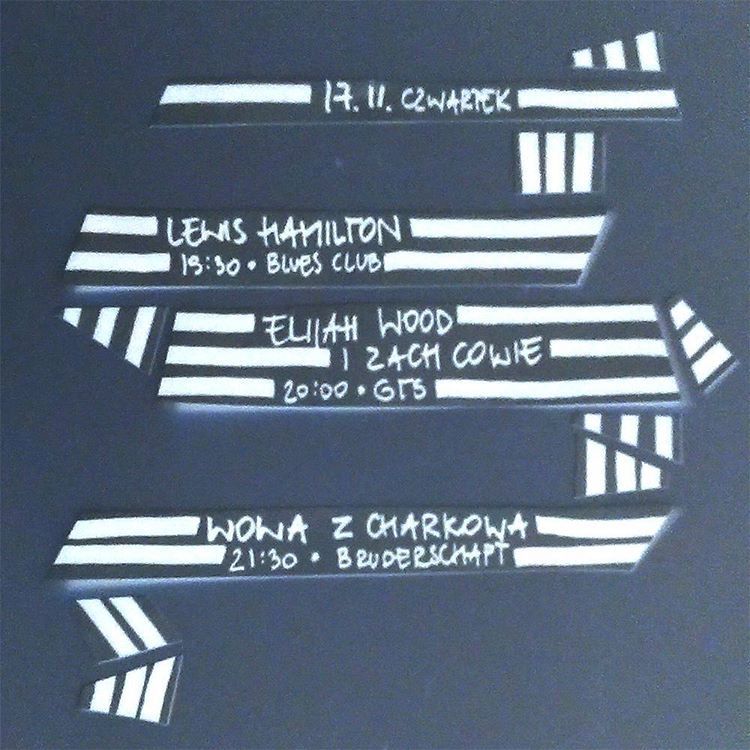 17.11. CZWARTEK
LEWIS HAMILTON
19:30 • BLUES CLUB
ELIJAH WOOD
I ZACH COWIE
20:00 • GTS
WOWA Z CHARKOWA
21:30 • BRUDERSCHAFT